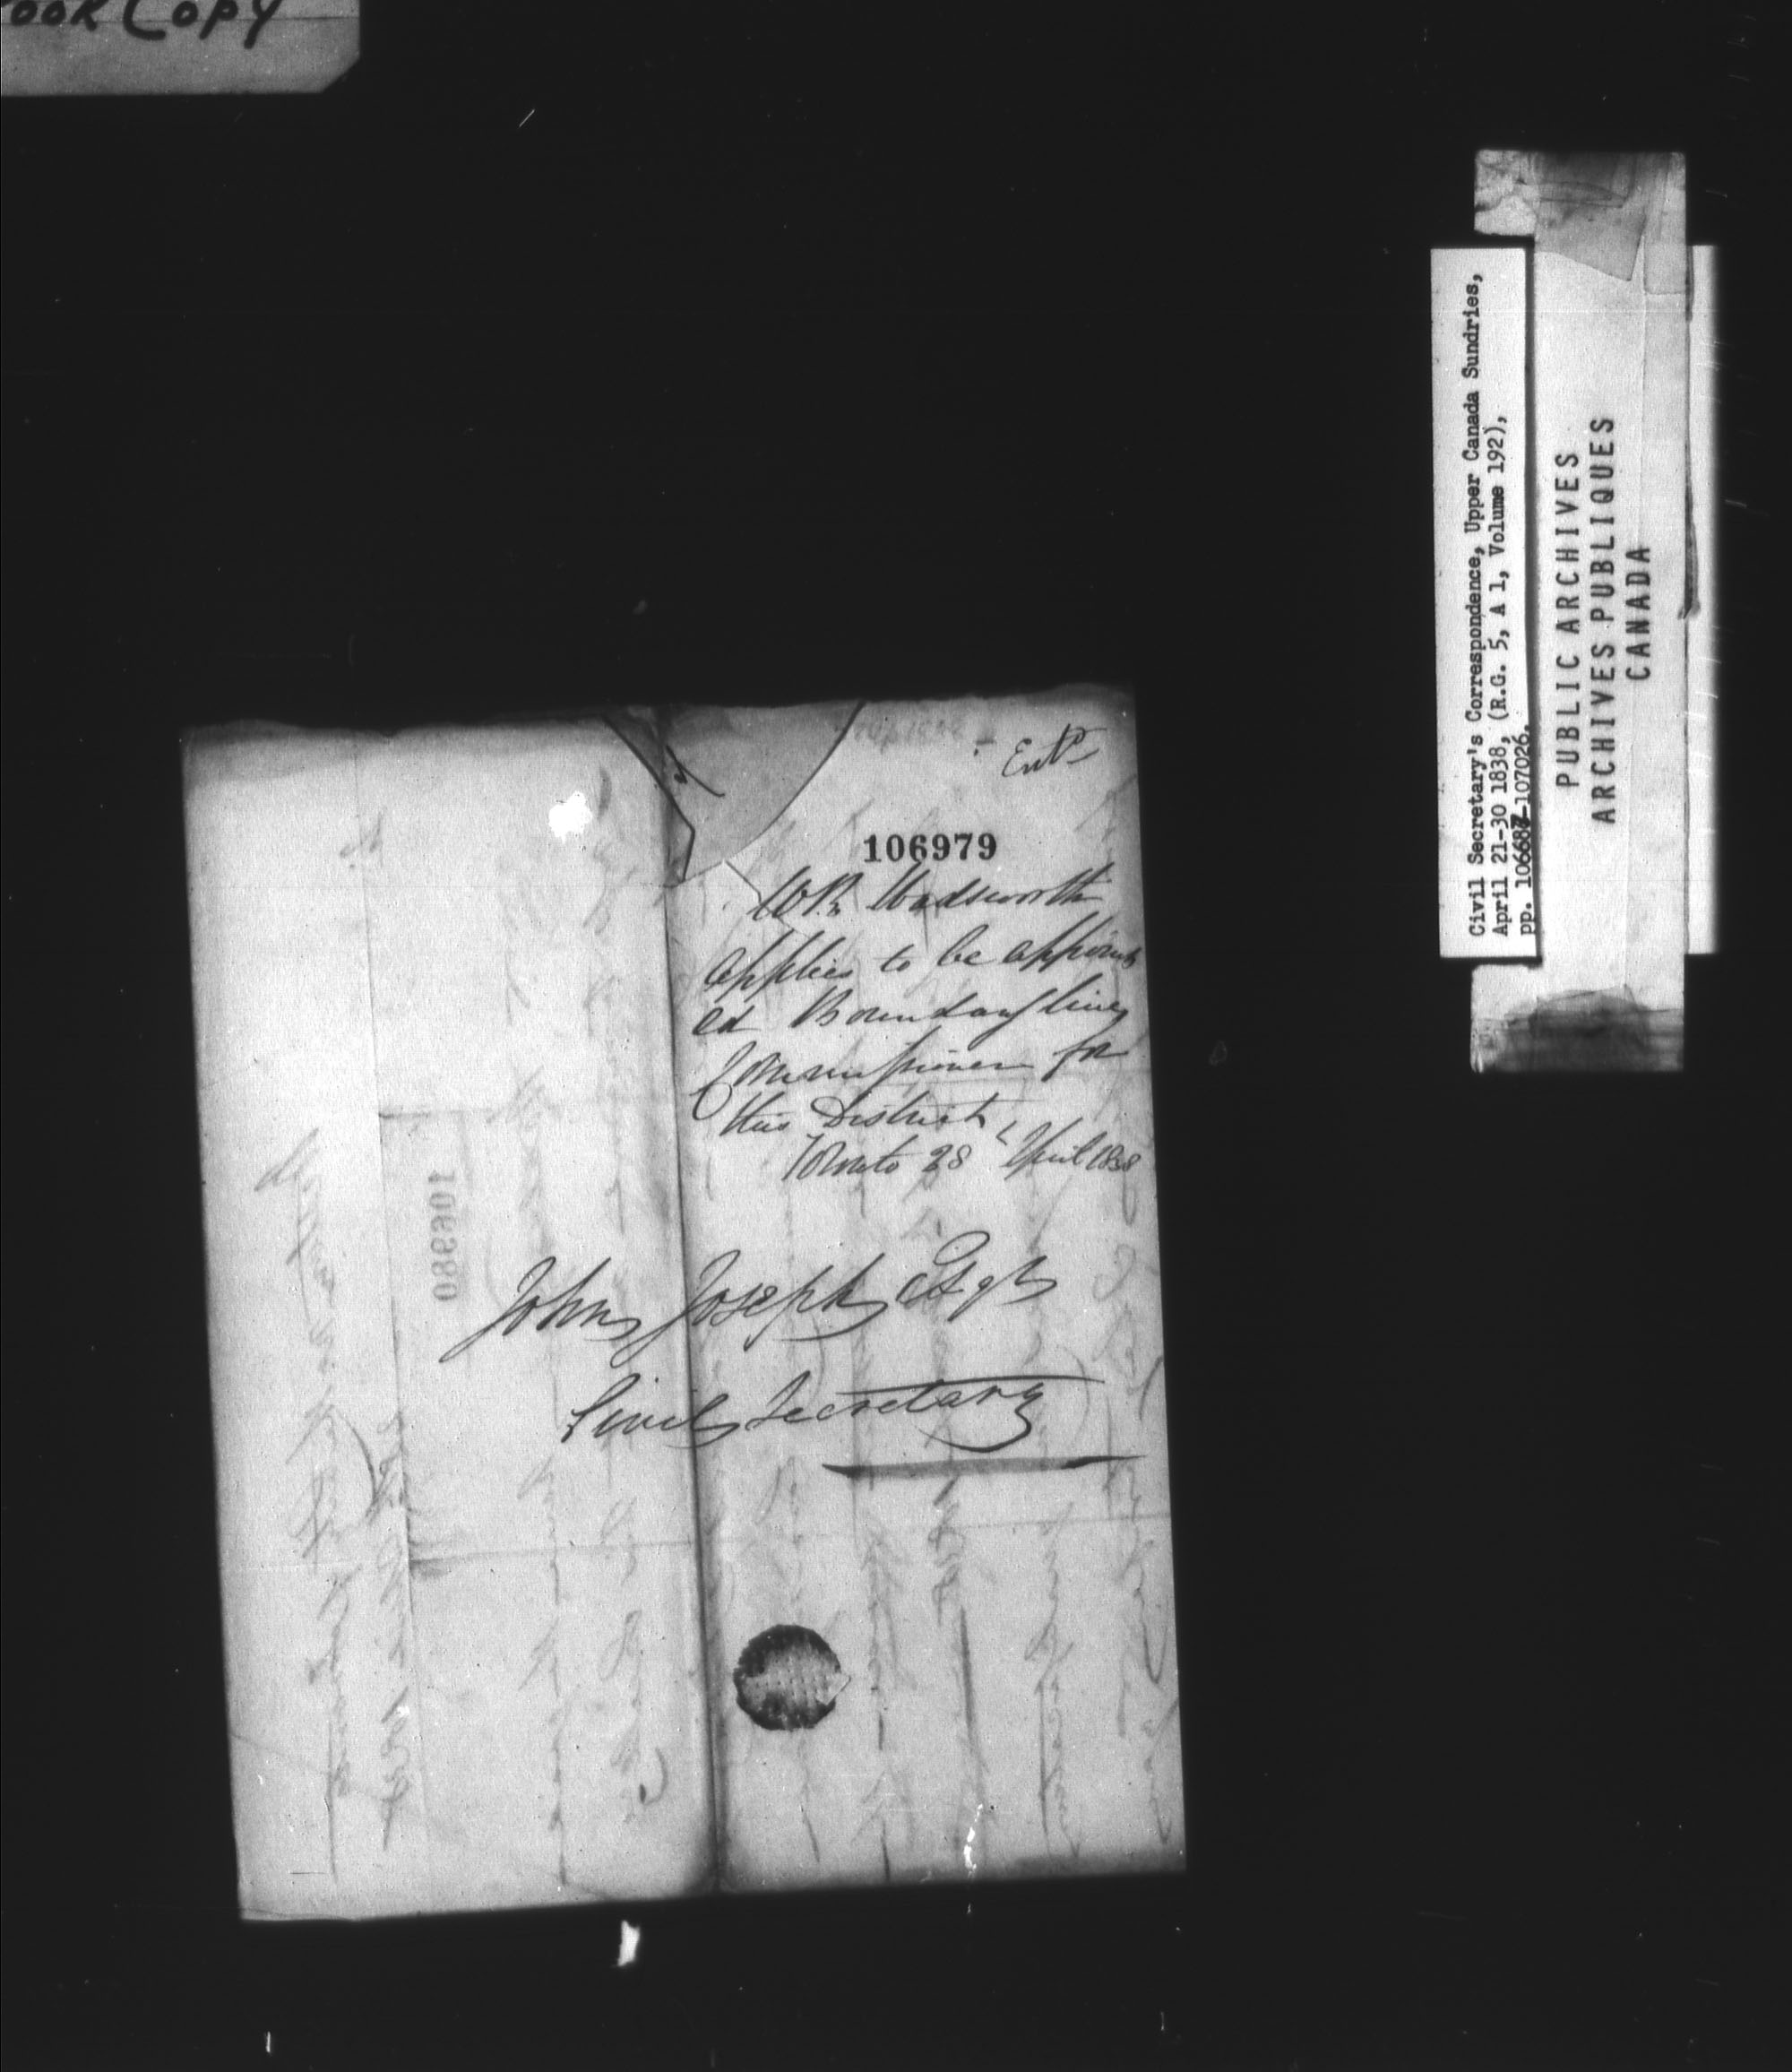 ook Copy
Entd
106979
W. R. Wadsworth
applies to be appoint
ed Boundary line
Commissioner for
this District
Toronto 28 April 1838
John Joseph Esqr
Civil Secretary
106980
Civil Secretary's Correspondence, Upper Canada Sundries,
April 21-30 1838, (R.G. 5, A 1, Volume 192),
pp. 106687-107026.
PUBLIC ARCHIVES
ARCHIVES PUBLIQUES
CANADA